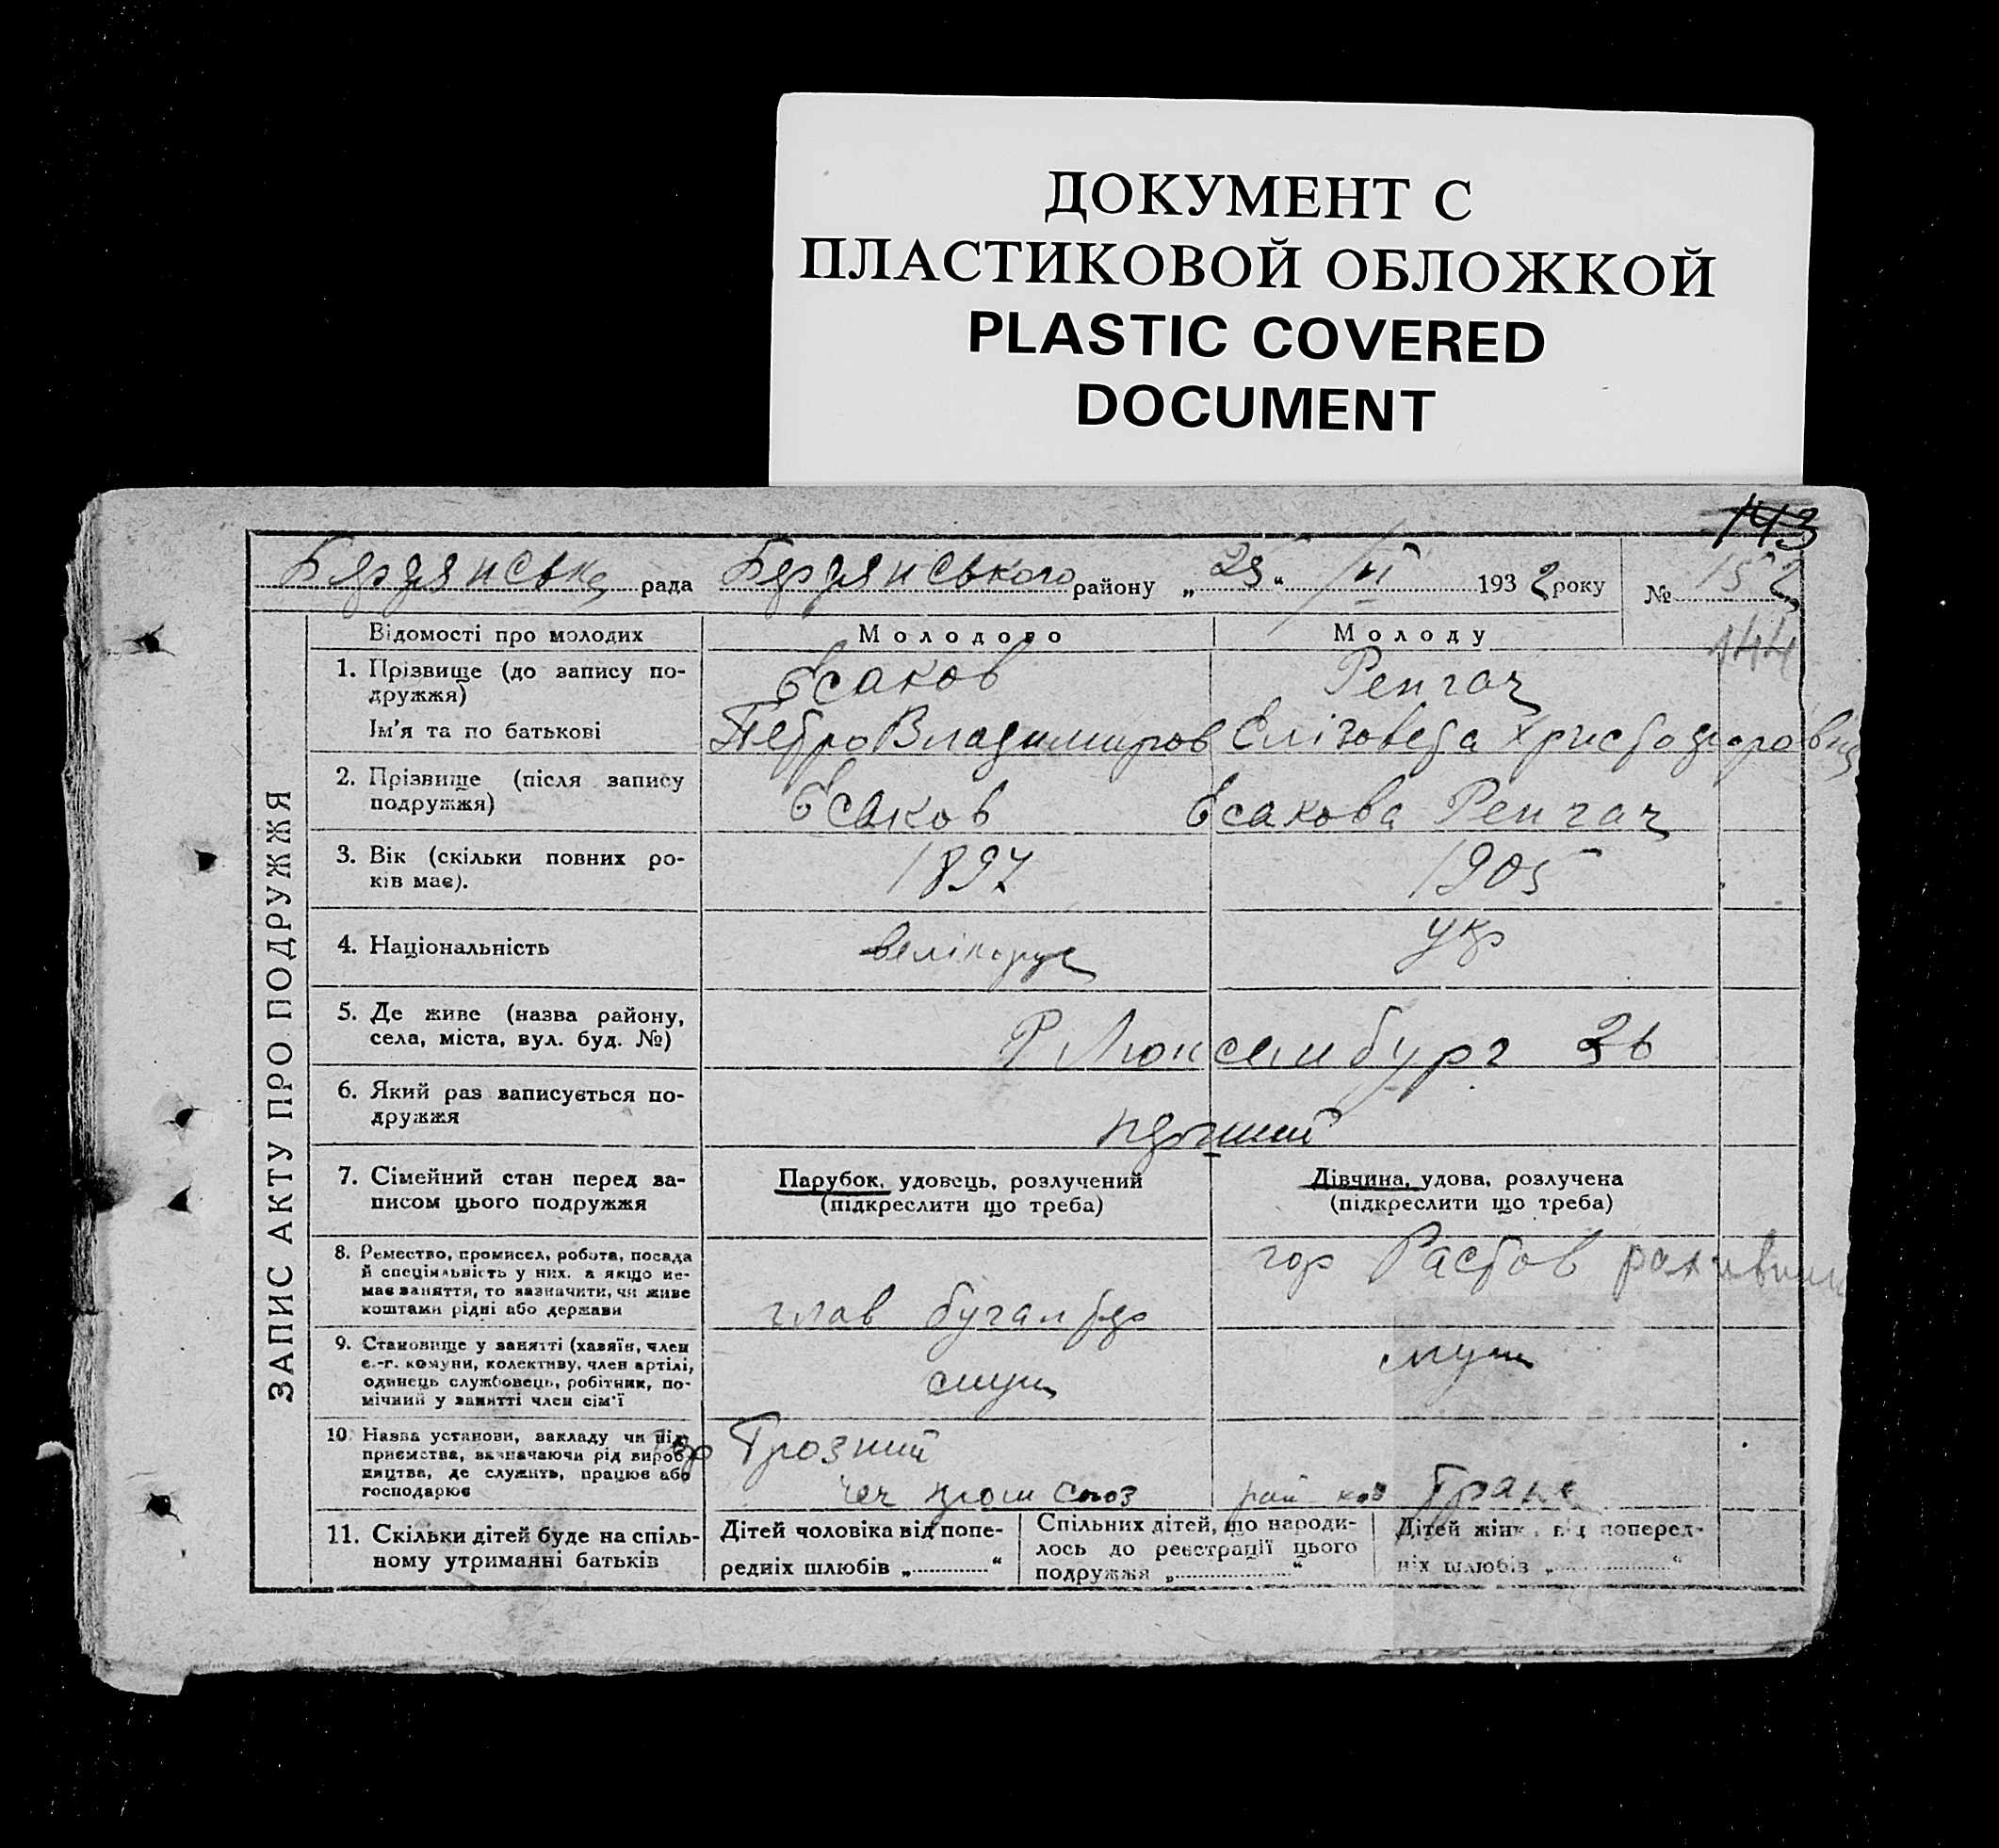 ДОКУМЕНТ С
ПЛАСТИКОВОЙ ОБЛОЖКОЙ
PLASTIC COVERED
DOCUMENT
143
Бердянська рада Бердянського району „25“ 193 2 року № 152
144
ЗАПИС АКТУ ПРО ПОДРУЖЖЯ
Відомості про молодих Молодого Молоду
1. Прізвище (до запису по-
дружжя)
Есаков Ренгач
Ім'я та по батькові Петро Владимиров Елізовета Христодоровна
2. Прізвище (після запису
подружжя)
Есаков Есакова Ренгач
3. Вік (скільки повних ро-
ків має).
1897 1905
4. Національність велікорус укр
5. Де живе (назва району,
села, міста, вул. буд. №)
Р Люксембург 36
6. Який раз записується по-
дружжя
перший
7. Сімейний стан перед за-
писом цього подружжя
Парубок, удовець, розлучений
(підкреслити що треба)
Дівчина, удова, розлучена
(підкреслити що треба)
8. Ремество, промисел, робота, посада
й спеціяльність у них, а якщо не-
має заняття, то зазначити, чи живе
коштами рідні або держави
глав бугалтер
гор Растов
9. Становище у занятті (хазяїн, член
с.-г. комуни, колективу, член артілі,
одинець службовець, робітник, по-
мічний у занятті член сім'ї
служ
служ
10. Назва установи, закладу чи під-
приємства, зазначаючи рід вироб-
ництва, де служить, працює або
господарює
гор Грозний
чеч пром союз
11. Скільки дітей буде на спіль-
ному утриманні батьків
Дітей чоловіка від попе-
редніх шлюбів „ “
Спільних дітей, що народи-
лось до реєстрації цього
подружжя „ “
Дітей жінки від поперед-
ніх шлюбів „ “